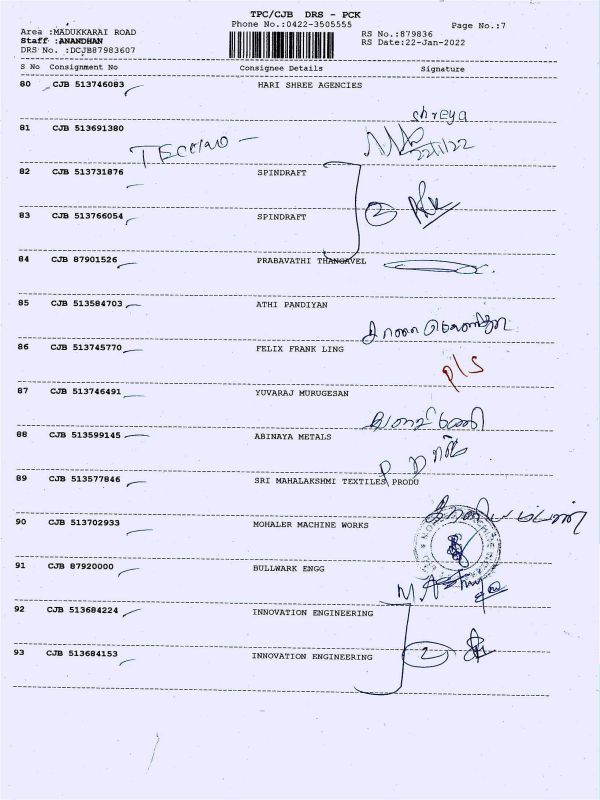 TPC/CJB DRS - PCK
Phone No.:0422-3505555
Page No.:7
Area :MADUKKARAI ROAD
RS No.:879836
Staff :ANANDHAN
RS Date:22-Jan-2022
DRS No. :DCJB87983607
S No Consignment No Consignee Details Signature
80 CJB 513746083 HARI SHREE AGENCIES
shreya
81 CJB 513691380
22/1/22
82 CJB 513731876 SPINDRAFT
83 CJB 513766054 SPINDRAFT
2
84 CJB 87901526 PRABAVATHI THANGAVEL
85 CJB 513584703 ATHI PANDIYAN
86 CJB 513745770 FELIX FRANK LING
P/S
87 CJB 513746491 YUVARAJ MURUGESAN
88 CJB 513599145 ABINAYA METALS
89 CJB 513577846 SRI MAHALAKSHMI TEXTILES PRODU
90 CJB 513702933 MOHALER MACHINE WORKS
91 CJB 87920000 BULLWARK ENGG
92 CJB 513684224 INNOVATION ENGINEERING
93 CJB 513684153 INNOVATION ENGINEERING
2